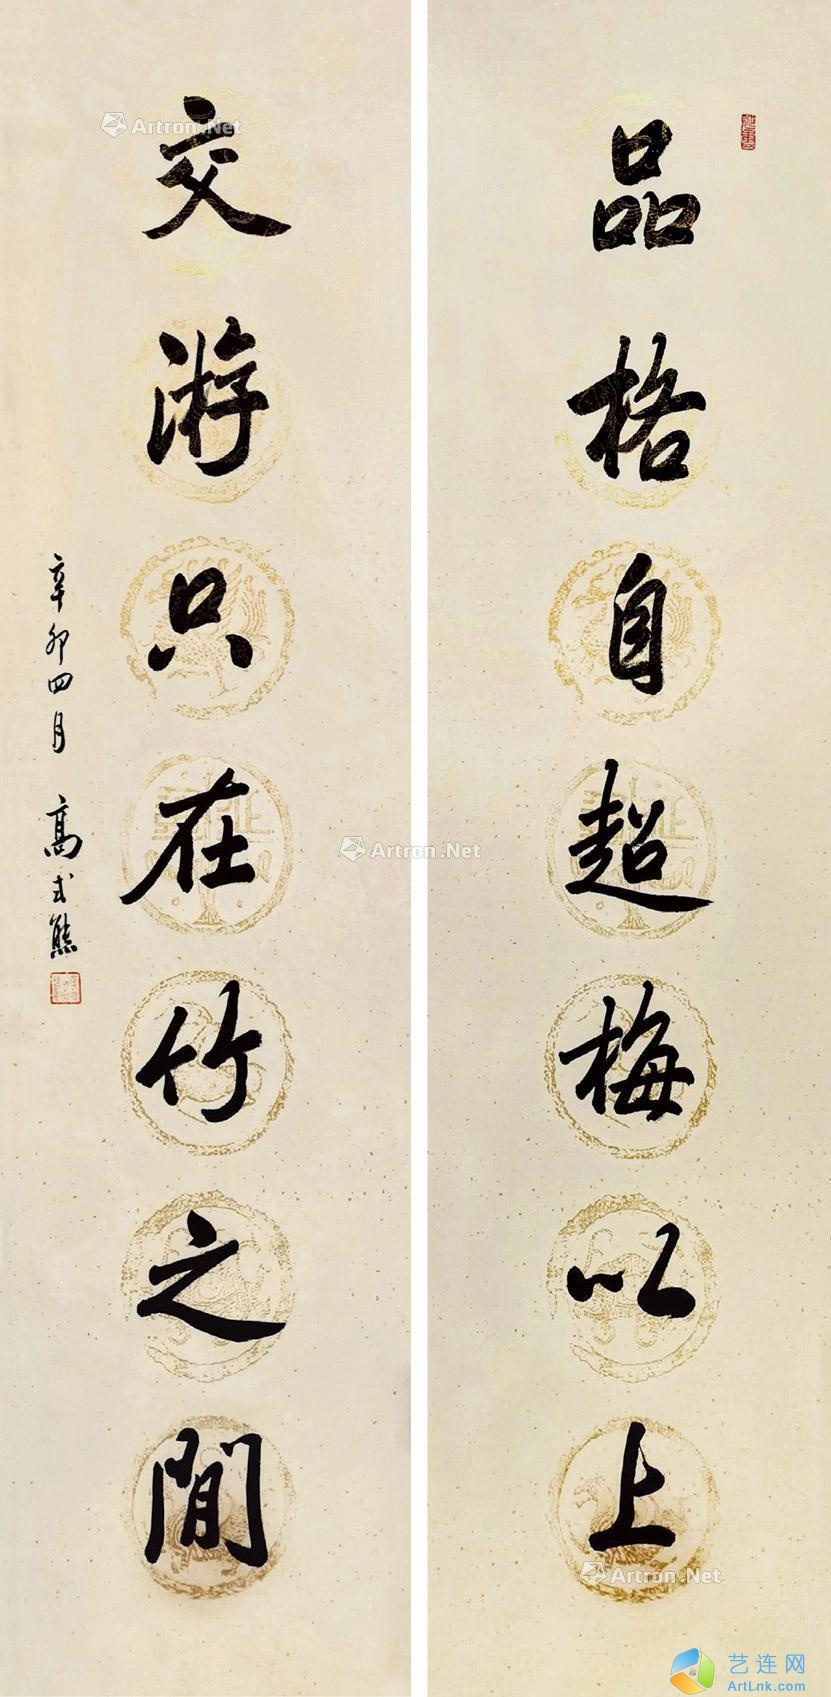 品格自超梅以上
交游只在竹之間
辛卯四月 高式熊
Artron.Net
Artron.Net
Artron.Net
艺连网
ArtLnk.com